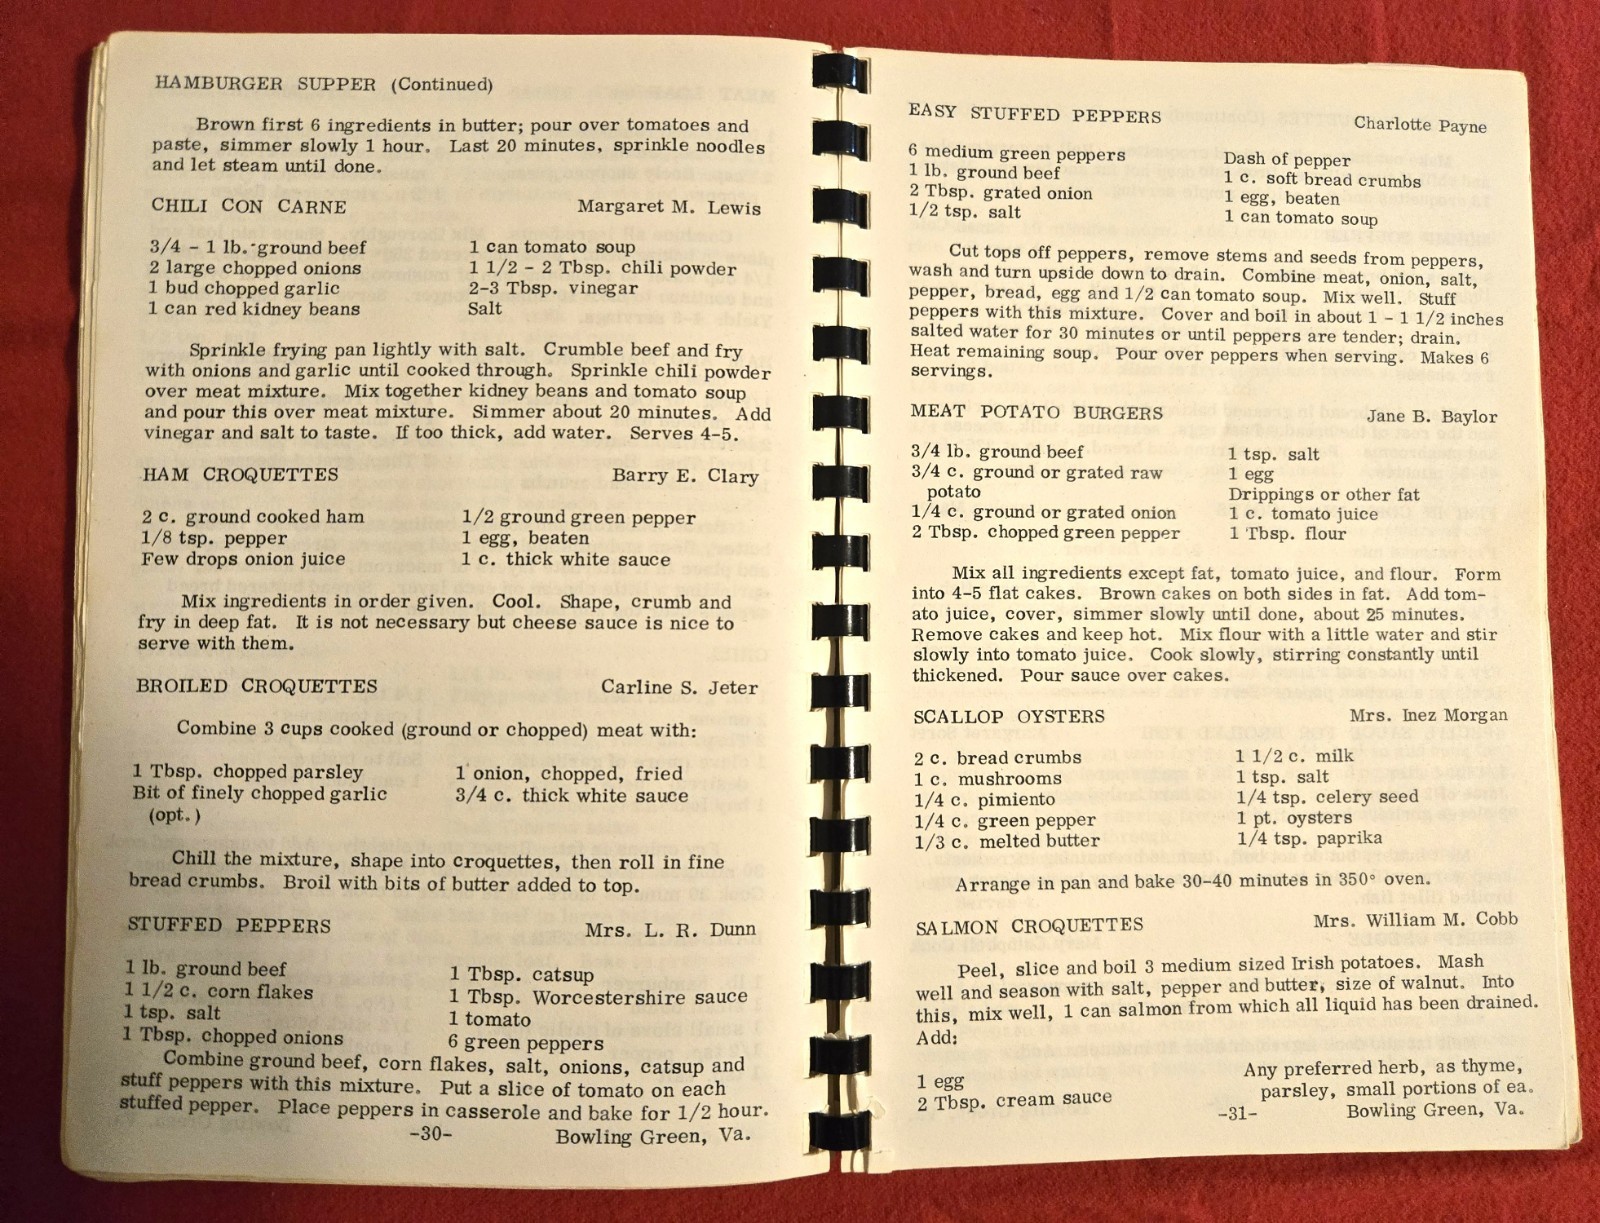 HAMBURGER SUPPER (Continued)
Brown first 6 ingredients in butter; pour over tomatoes and
paste, simmer slowly 1 hour. Last 20 minutes, sprinkle noodles
and let steam until done.
CHILI CON CARNE Margaret M. Lewis
3/4 - 1 lb. ground beef 1 can tomato soup
2 large chopped onions 1 1/2 - 2 Tbsp. chili powder
1 bud chopped garlic 2-3 Tbsp. vinegar
1 can red kidney beans Salt
Sprinkle frying pan lightly with salt. Crumble beef and fry
with onions and garlic until cooked through. Sprinkle chili powder
over meat mixture. Mix together kidney beans and tomato soup
and pour this over meat mixture. Simmer about 20 minutes. Add
vinegar and salt to taste. If too thick, add water. Serves 4-5.
HAM CROQUETTES Barry E. Clary
2 c. ground cooked ham 1/2 ground green pepper
1/8 tsp. pepper 1 egg, beaten
Few drops onion juice 1 c. thick white sauce
Mix ingredients in order given. Cool. Shape, crumb and
fry in deep fat. It is not necessary but cheese sauce is nice to
serve with them.
BROILED CROQUETTES Carline S. Jeter
Combine 3 cups cooked (ground or chopped) meat with:
1 Tbsp. chopped parsley 1 onion, chopped, fried
Bit of finely chopped garlic 3/4 c. thick white sauce
(opt.)
Chill the mixture, shape into croquettes, then roll in fine
bread crumbs. Broil with bits of butter added to top.
STUFFED PEPPERS Mrs. L. R. Dunn
1 lb. ground beef 1 Tbsp. catsup
1 1/2 c. corn flakes 1 Tbsp. Worcestershire sauce
1 tsp. salt 1 tomato
1 Tbsp. chopped onions 6 green peppers
Combine ground beef, corn flakes, salt, onions, catsup and
stuff peppers with this mixture. Put a slice of tomato on each
stuffed pepper. Place peppers in casserole and bake for 1/2 hour.
-30- Bowling Green, Va.
EASY STUFFED PEPPERS Charlotte Payne
6 medium green peppers Dash of pepper
1 lb. ground beef 1 c. soft bread crumbs
2 Tbsp. grated onion 1 egg, beaten
1/2 tsp. salt 1 can tomato soup
Cut tops off peppers, remove stems and seeds from peppers,
wash and turn upside down to drain. Combine meat, onion, salt,
pepper, bread, egg and 1/2 can tomato soup. Mix well. Stuff
peppers with this mixture. Cover and boil in about 1 - 1 1/2 inches
salted water for 30 minutes or until peppers are tender; drain.
Heat remaining soup. Pour over peppers when serving. Makes 6
servings.
MEAT POTATO BURGERS Jane B. Baylor
3/4 lb. ground beef 1 tsp. salt
3/4 c. ground or grated raw 1 egg
potato Drippings or other fat
1/4 c. ground or grated onion 1 c. tomato juice
2 Tbsp. chopped green pepper 1 Tbsp. flour
Mix all ingredients except fat, tomato juice, and flour. Form
into 4-5 flat cakes. Brown cakes on both sides in fat. Add tom-
ato juice, cover, simmer slowly until done, about 25 minutes.
Remove cakes and keep hot. Mix flour with a little water and stir
slowly into tomato juice. Cook slowly, stirring constantly until
thickened. Pour sauce over cakes.
SCALLOP OYSTERS Mrs. Inez Morgan
2 c. bread crumbs 1 1/2 c. milk
1 c. mushrooms 1 tsp. salt
1/4 c. pimiento 1/4 tsp. celery seed
1/4 c. green pepper 1 pt. oysters
1/3 c. melted butter 1/4 tsp. paprika
Arrange in pan and bake 30-40 minutes in 350° oven.
SALMON CROQUETTES Mrs. William M. Cobb
Peel, slice and boil 3 medium sized Irish potatoes. Mash
well and season with salt, pepper and butter, size of walnut. Into
this, mix well, 1 can salmon from which all liquid has been drained.
Add:
1 egg Any preferred herb, as thyme,
2 Tbsp. cream sauce parsley, small portions of ea.
-31- Bowling Green, Va.